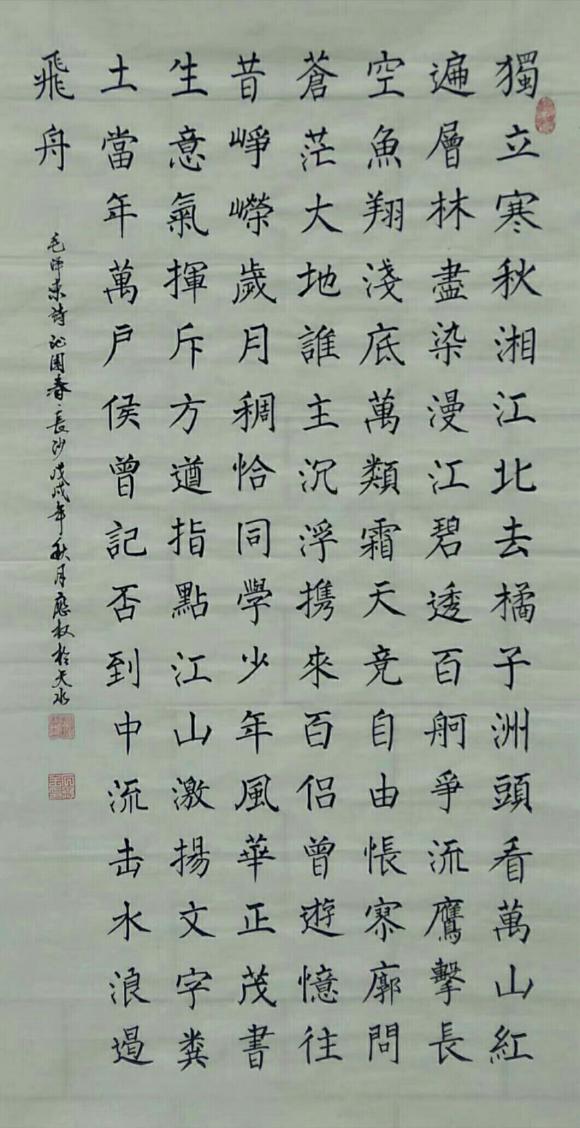 獨立寒秋湘江北去橘子洲頭看萬山紅
遍層林盡染漫江碧透百舸爭流鷹擊長
空魚翔淺底萬類霜天竞自由悵寥廓問
蒼茫大地誰主沉浮携來百侣曾遊憶往
昔崢嶸歲月稠恰同學少年風華正茂書
生意氣揮斥方遒指點江山激揚文字粪
土當年萬户侯曾記否到中流击水浪遏
飛舟
毛泽東詩沁園春·長沙戊戌年秋月應权於天水